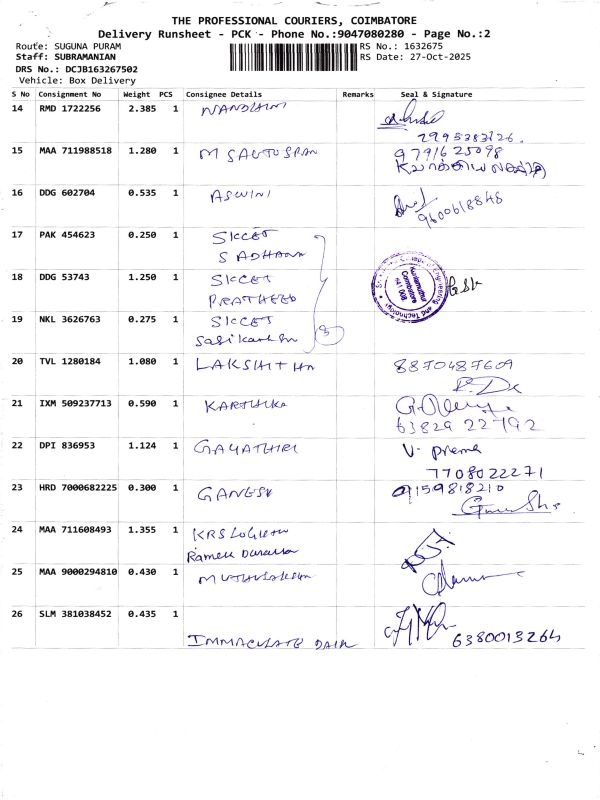 THE PROFESSIONAL COURIERS, COIMBATORE
Delivery Runsheet - PCK - Phone No.:9047080280 - Page No.:2
Route: SUGUNA PURAM
RS No.: 1632675
Staff: SUBRAMANIAN
RS Date: 27-Oct-2025
DRS No.: DCJB163267502
Vehicle: Box Delivery
S No Consignment No Weight PCS Consignee Details Remarks Seal & Signature
14 RMD 1722256 2.385 1 NANDHINI
2995383126.
15 MAA 711988518 1.280 1 M SAUTUSPAN 9791625098
16 DDG 602704 0.535 1 ASWINI
9600618848
17 PAK 454623 0.250 1 SKCET
SADHANA
18 DDG 53743 1.250 1 SKCET
PRATHEEP
Kuniamuthur
Coimbatore
641 008
and Technology
19 NKL 3626763 0.275 1 SKCET
Sasikanthan
3
20 TVL 1280184 1.080 1 LAKSHITHA 8870487609
21 IXM 509237713 0.590 1 KARTHIKA
63829 22792
22 DPI 836953 1.124 1 GAYATHIRI V. prema
7708022271
23 HRD 7000682225 0.300 1 GANESH 9159818210
24 MAA 711608493 1.355 1 KRS
25 MAA 9000294810 0.430 1
26 SLM 381038452 0.435 1
IMMACULATE 6380013264